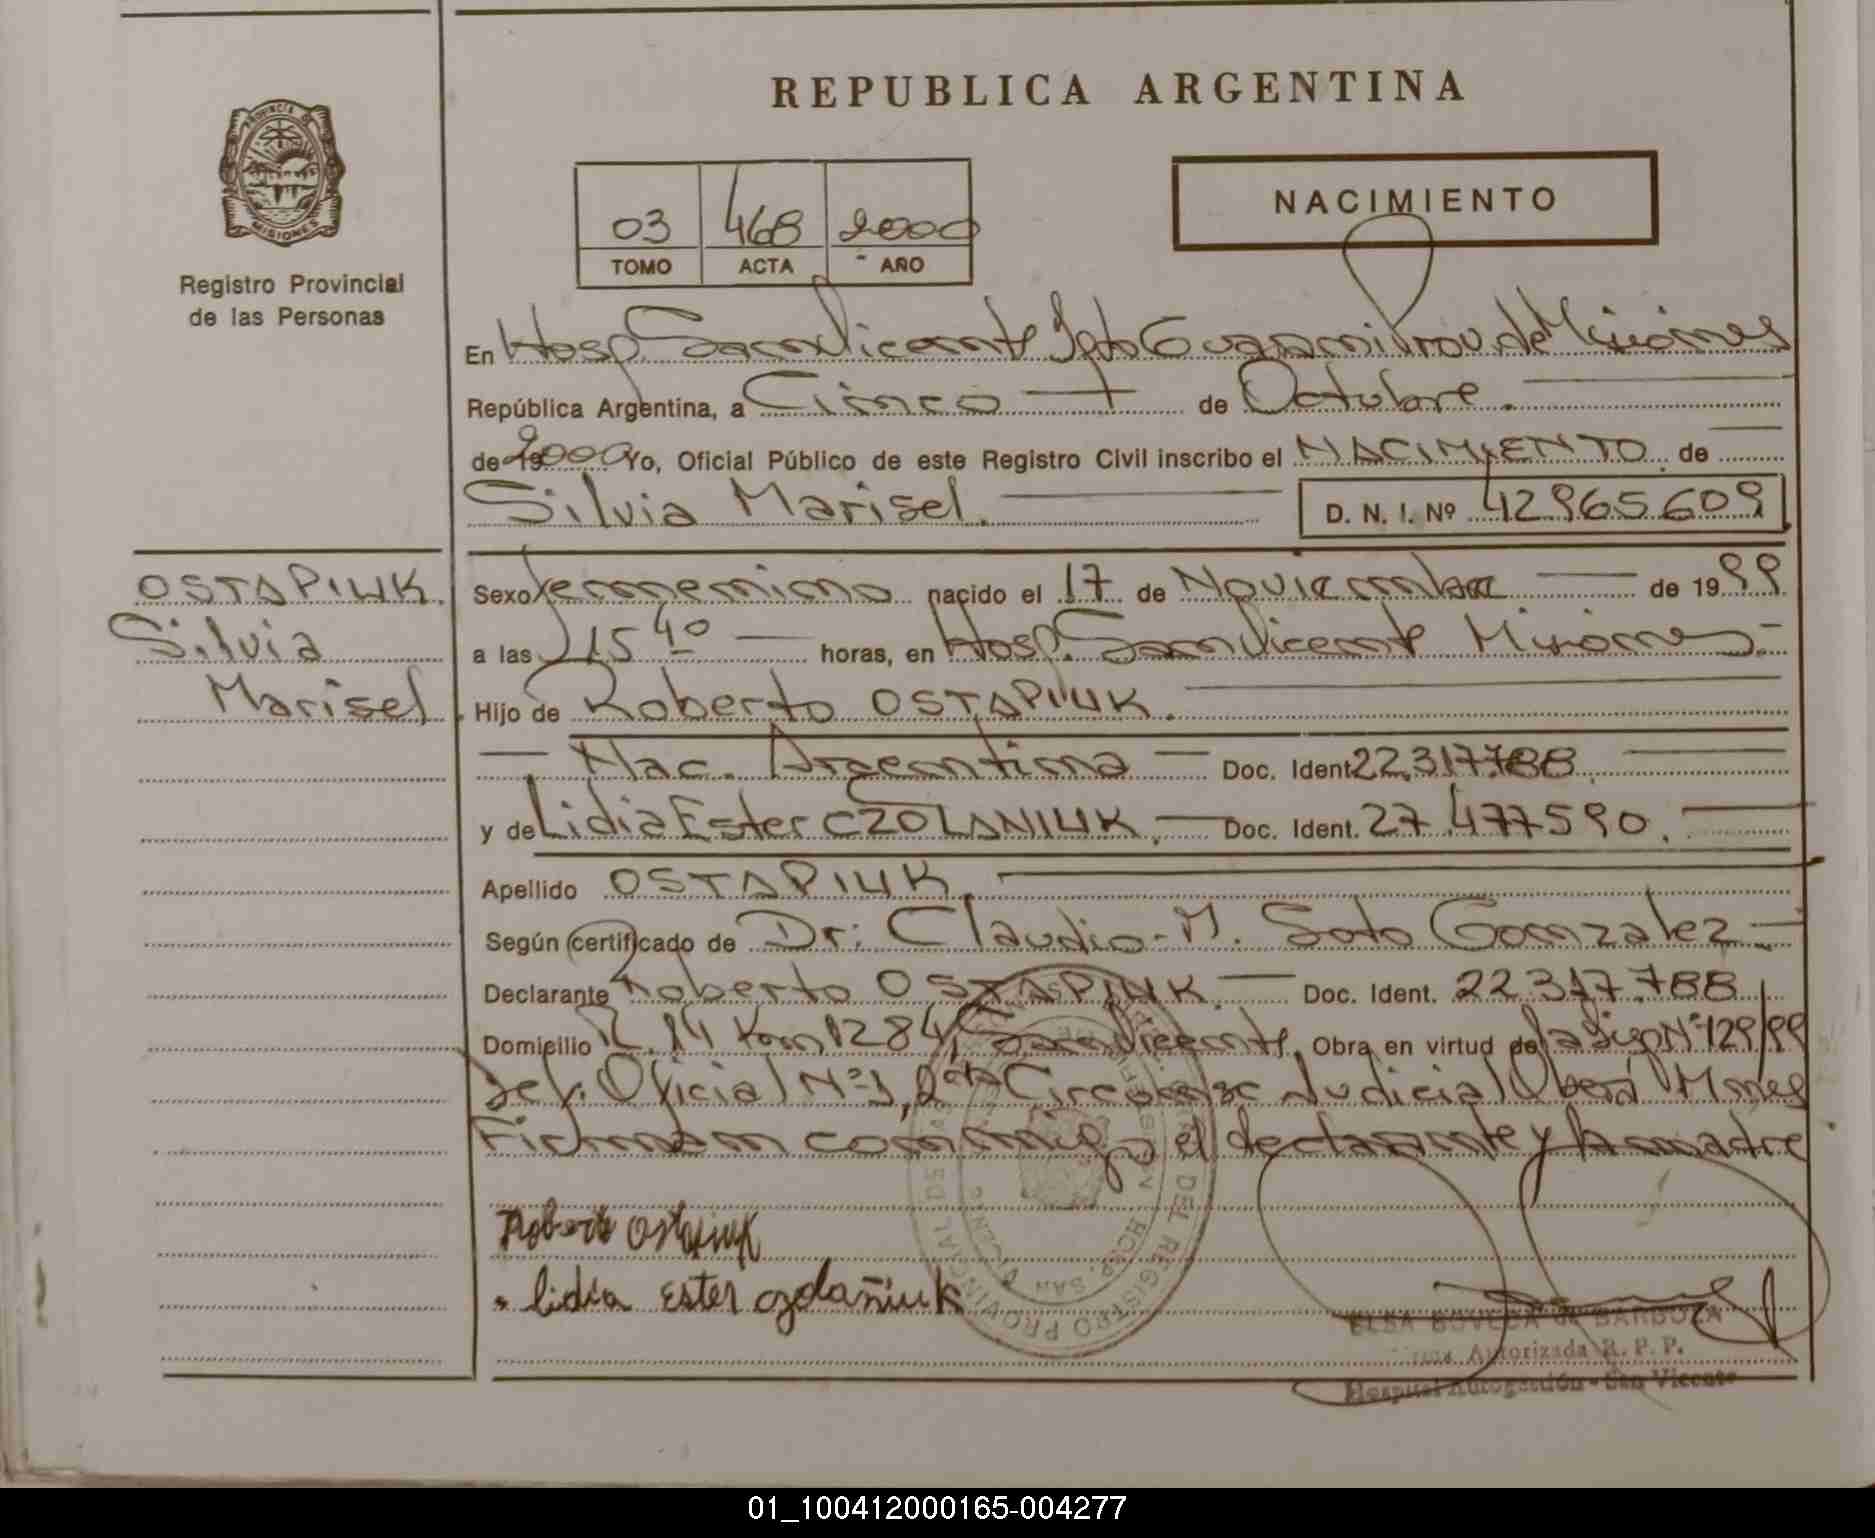 REPUBLICA ARGENTINA
PROVINCIA DE
MISIONES
Registro Provincial
de las Personas
NACIMIENTO
03 468 2000
TOMO ACTA AÑO
En Hosp. San Vicente Dpto Guarani Prov. de Misiones
República Argentina, a Cinco de Octubre.
de 19 2000 Yo, Oficial Público de este Registro Civil inscribo el NACIMIENTO de
Silvia Marisel.
D. N. I. Nº 42965609
OSTAPIUK
Silvia
Marisel
Sexo femenino nacido el 17 de Noviembre de 1999
a las 15 40 horas, en Hosp. San Vicente Misiones.-
Hijo de Roberto OSTAPIUK.
Nac. Argentina Doc. Ident 22.317.788
y de Lidia Ester CZOLANIUK. Doc. Ident. 27.477590.
Apellido OSTAPIUK.
Según certificado de Dr: Claudio M. Soto Gonzalez
Declarante Roberto OSTAPIUK. Doc. Ident. 22.317.788
Domicilio R. 14 Km 1284, San Vicente. Obra en virtud de la Disp Nº 129/99
Def. Oficial Nº 1, 2da Circunsc Judicial Oberá Mnes
Firman conmigo el declarante y la madre
Roberto Ostapiuk
Lidia Ester czolañiuk
REGISTRO PROVINCIAL DE
HOSP. SAN VICENTE
ELSA BOVEDA de BARBOZA
Autorizada R. P. P.
Hospital Autogestión - San Vicente
01_100412000165-004277